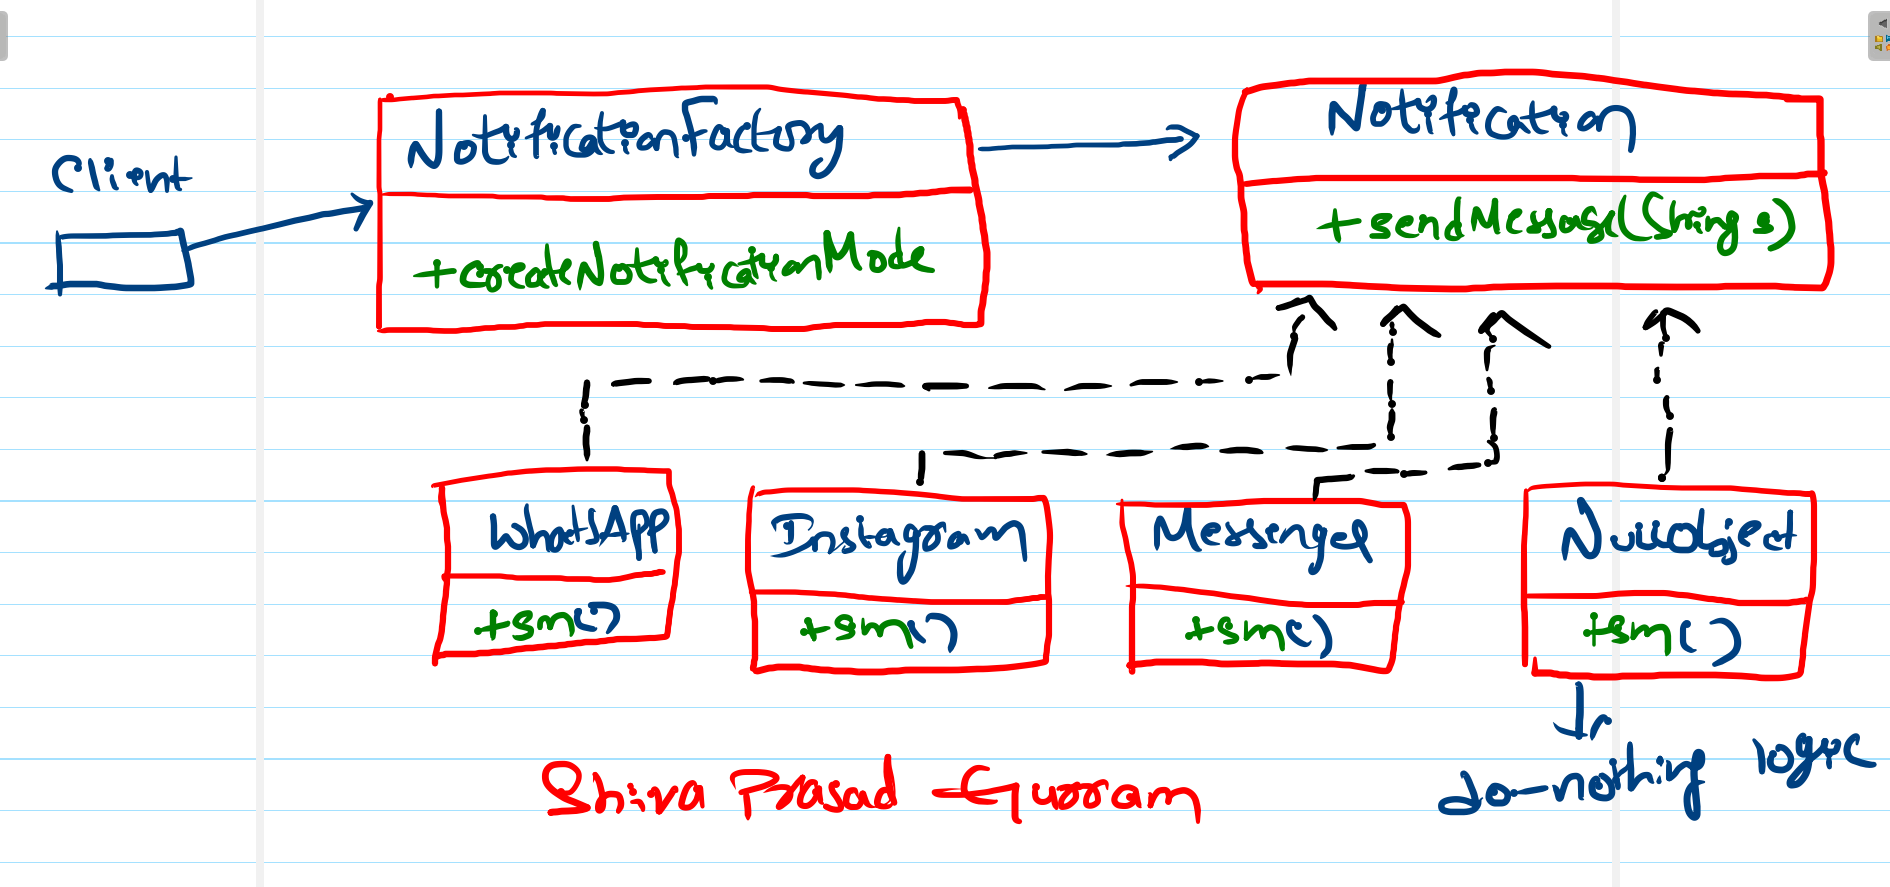 Client
NotificationFactory
+createNotificationMode
Notification
+sendMessage(String s)
WhatsApp
+sm()
Instagram
+sm()
Messenger
+sm()
NullObject
+sm()
do-nothing logic
Shiva Prasad Gurram